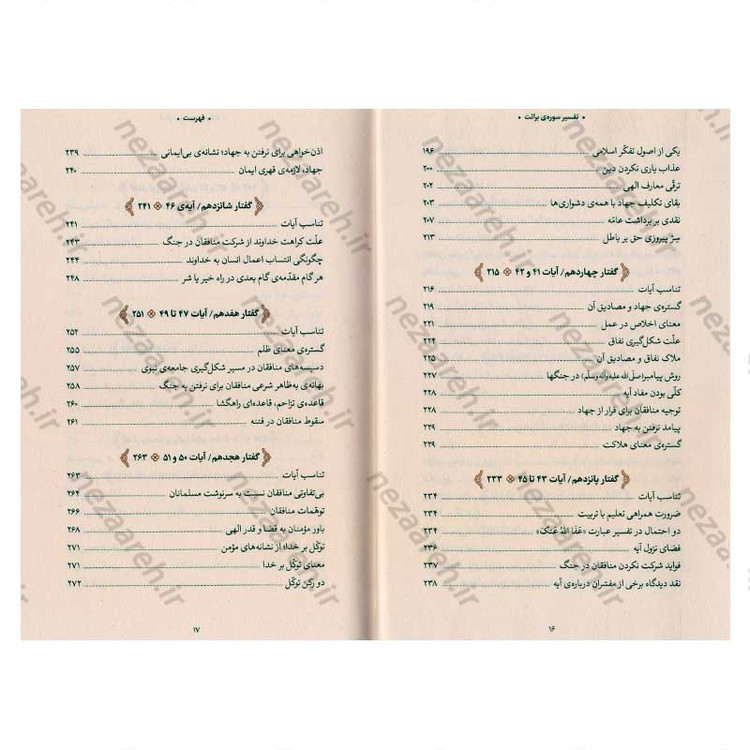 • تفسیر سوره‌ی برائت •
یکی از اصول تفکّر اسلامی ۱۹۶
عذاب یاری نکردن دین ۲۰۰
ترقّی معارف الهی ۲۰۲
بقای تکلیف جهاد با همه‌ی دشواری‌ها ۲۰۳
نقدی بر برداشت عامّه ۲۰۷
سِرّ پیروزی حق بر باطل ۲۱۳
گفتار چهاردهم/ آیات ۴۱ و ۴۲ ۲۱۵
تناسب آیات ۲۱۶
گستره‌ی جهاد و مصادیق آن ۲۱۹
معنای اخلاص در عمل ۲۲۱
علّت شکل‌گیری نفاق ۲۲۴
ملاک نفاق و مصادیق آن ۲۲۵
روش پیامبر(صلّی الله علیه وآله وسلّم) در جنگها ۲۲۷
کلّی بودن مفاد آیه ۲۲۸
توجیه منافقان برای فرار از جهاد ۲۲۸
پیامد نرفتن به جهاد ۲۲۹
گستره‌ی معنای هلاکت ۲۲۹
گفتار پانزدهم/ آیات ۴۳ تا ۴۵ ۲۳۳
تناسب آیات ۲۳۴
ضرورت همراهی تعلیم با تربیت ۲۳۴
دو احتمال در تفسیر عبارت «عَفَا اللّهُ عَنکَ» ۲۳۴
فضای نزول آیه ۲۳۶
فواید شرکت نکردن منافقان در جنگ ۲۳۷
نقد دیدگاه برخی از مفسّران درباره‌ی آیه ۲۳۸
۱۶
• فهرست •
اذن‌خواهی برای نرفتن به جهاد؛ نشانه‌ی بی‌ایمانی ۲۳۹
جهاد، لازمه‌ی قهری ایمان ۲۴۰
گفتار شانزدهم/ آیه‌ی ۴۶ ۲۴۱
تناسب آیات ۲۴۱
علّت کراهت خداوند از شرکت منافقان در جنگ ۲۴۳
چگونگی انتساب اعمال انسان به خداوند ۲۴۴
هر گام مقدّمه‌ی گام بعدی در راه خیر یا شر ۲۴۸
گفتار هفدهم/ آیات ۴۷ تا ۴۹ ۲۵۱
تناسب آیات ۲۵۲
گستره‌ی معنای ظلم ۲۵۵
دسیسه‌های منافقان در مسیر شکل‌گیری جامعه‌ی نبوی ۲۵۷
بهانه‌ی به‌ظاهر شرعی منافقان برای نرفتن به جنگ ۲۵۸
قاعده‌ی تزاحم، قاعده‌ای راهگشا ۲۶۰
سقوط منافقان در فتنه ۲۶۱
گفتار هجدهم/ آیات ۵۰ و ۵۱ ۲۶۳
تناسب آیات ۲۶۳
بی‌تفاوتی منافقان نسبت به سرنوشت مسلمانان ۲۶۴
توهّمات منافقان ۲۶۶
باور مؤمنان به قضا و قدر الهی ۲۶۸
توکّل بر خدا؛ از نشانه‌های مؤمن ۲۷۱
معنای توکّل بر خدا ۲۷۱
دو رکن توکّل ۲۷۲
۱۷
nezaareh.ir